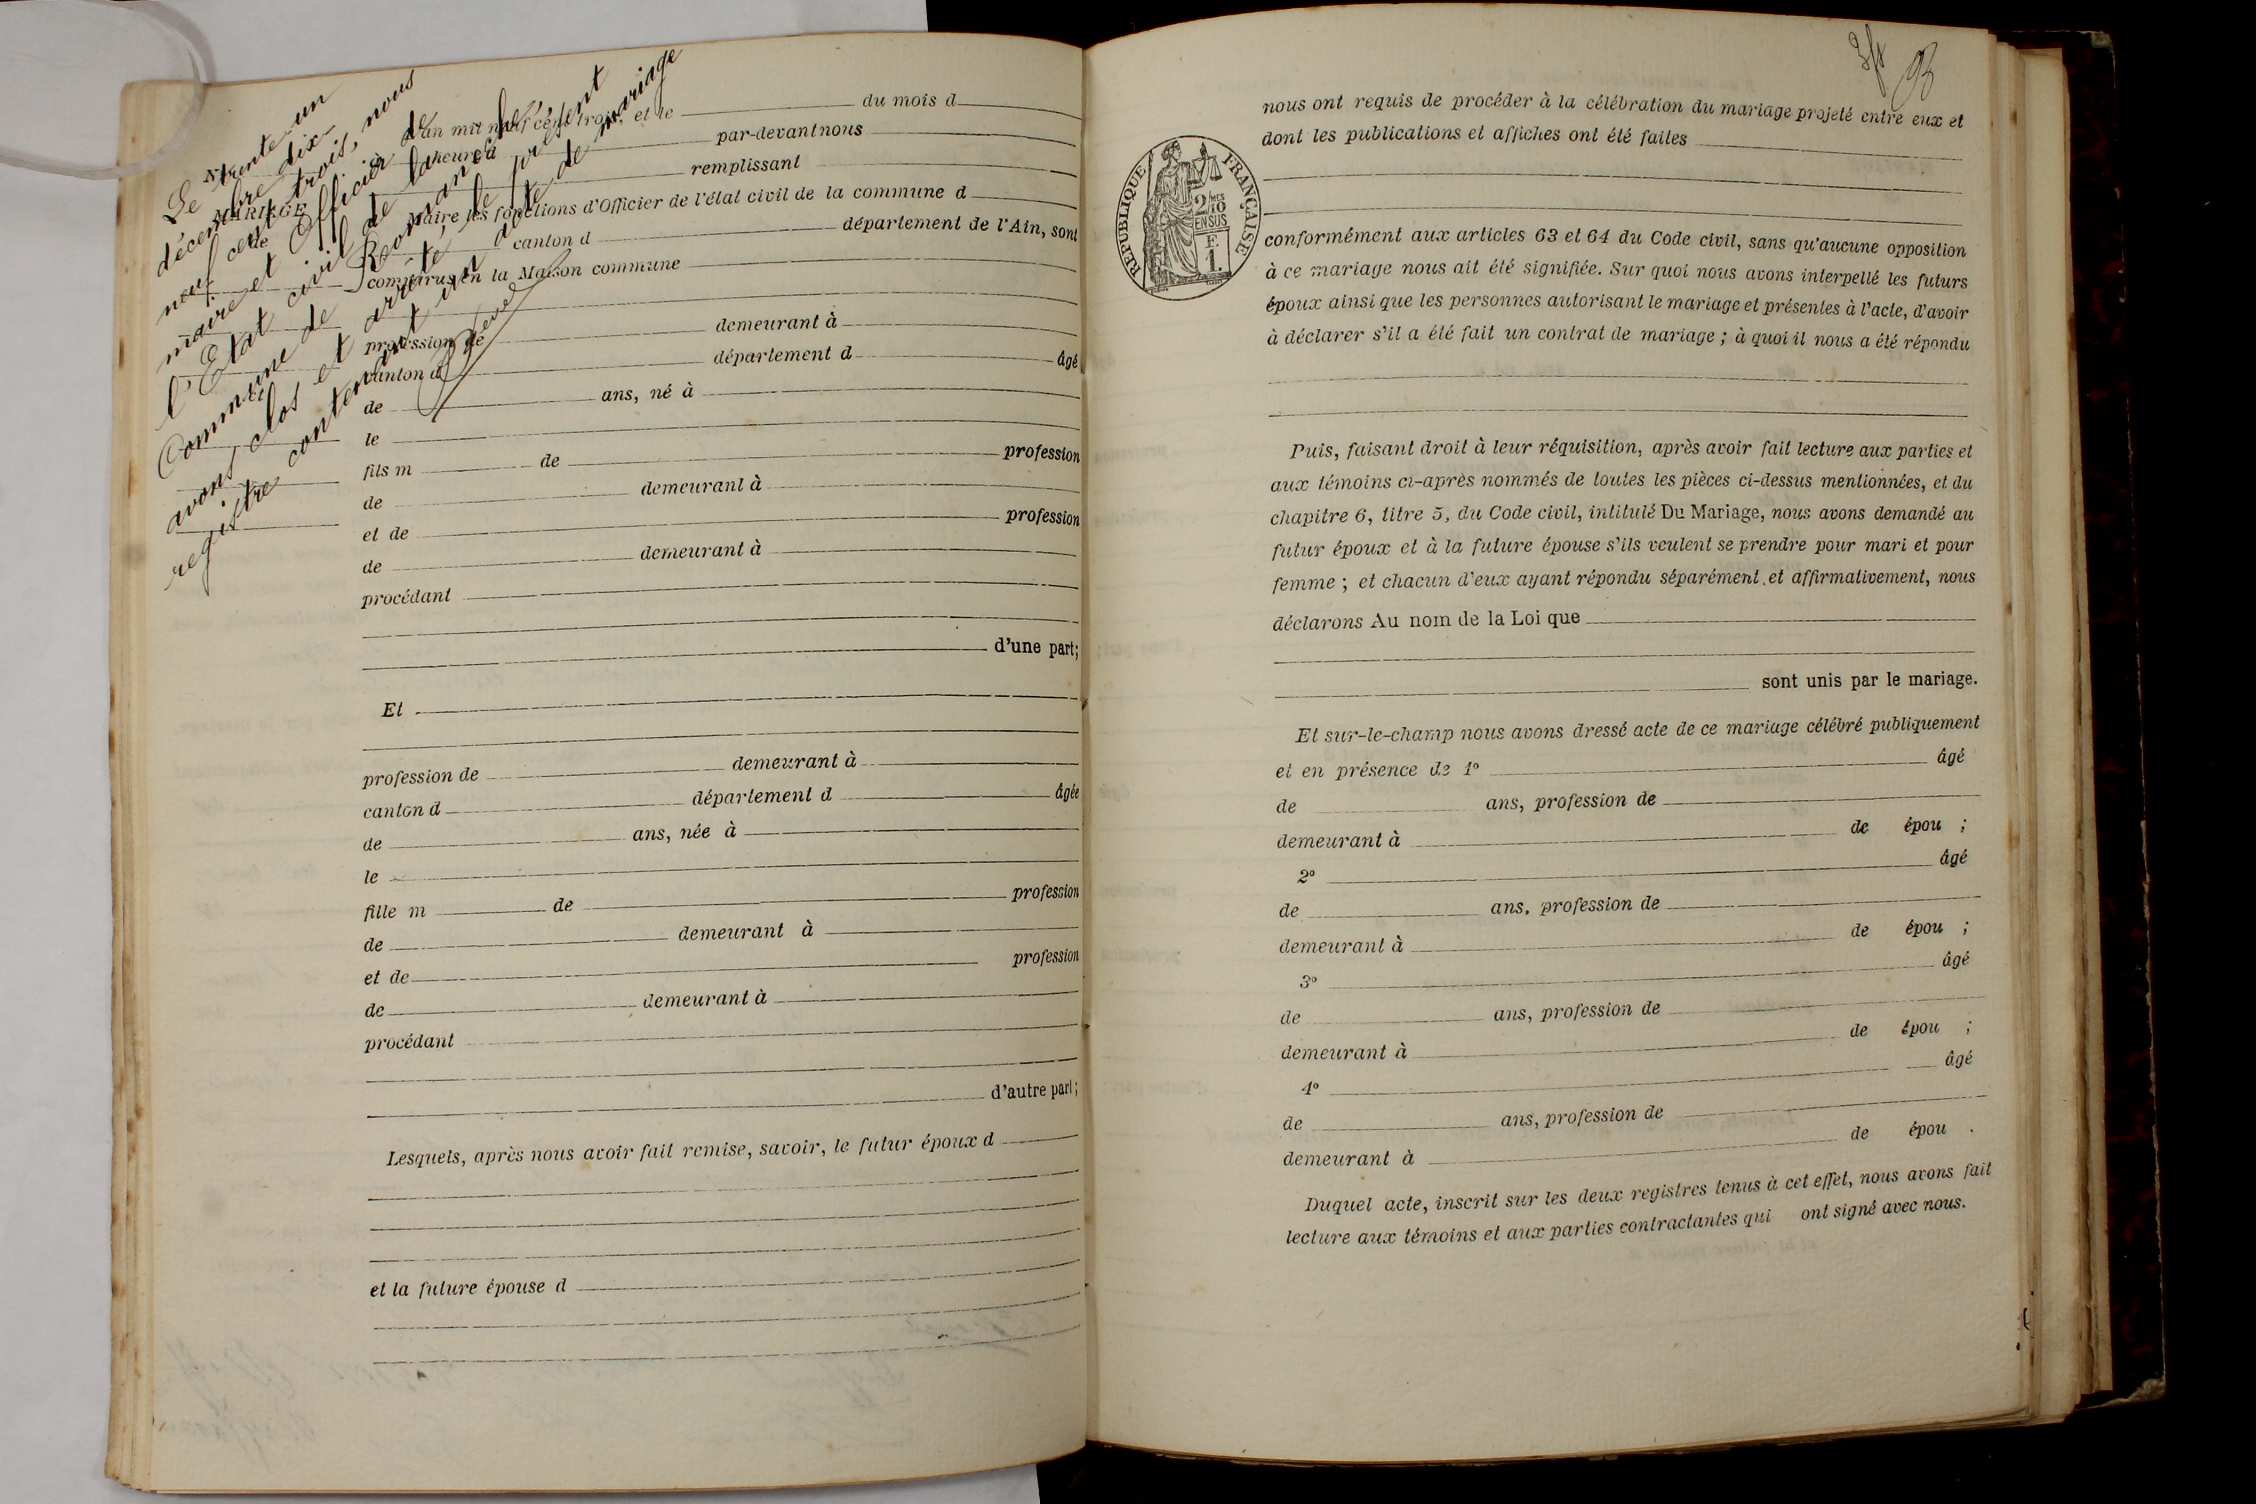 Le trente-un
décembre dix-
neuf cent trois, nous
maire et Officier de
l'Etat civil de la
Commune de Romanèche
avons clos et arrêté le présent
registre contenant un acte de mariage
N°
MARIAGE
de
et
L'an mil neuf cent trois, et le du mois d
heure d par-devant nous
remplissant
Maire les fonctions d'Officier de l'état civil de la commune d
canton d département de l'Ain, sont
comparus en la Maison commune
profession de demeurant à
canton d département d âgé
de ans, né à
le
fils m de profession
de demeurant à
et de profession
de demeurant à
procédant
d'une part;
Et
profession de demeurant à
canton d département d âgée
de ans, née à
le
fille m de profession
de demeurant à
et de profession
de demeurant à
procédant
d'autre part;
Lesquels, après nous avoir fait remise, savoir, le futur époux d
et la future épouse d
93
RÉPUBLIQUE FRANÇAISE
2/10
EN SUS
F.
1.
nous ont requis de procéder à la célébration du mariage projeté entre eux et
dont les publications et affiches ont été faites
conformément aux articles 63 et 64 du Code civil, sans qu'aucune opposition
à ce mariage nous ait été signifiée. Sur quoi nous avons interpellé les futurs
époux ainsi que les personnes autorisant le mariage et présentes à l'acte, d'avoir
à déclarer s'il a été fait un contrat de mariage ; à quoi il nous a été répondu
Puis, faisant droit à leur réquisition, après avoir fait lecture aux parties et
aux témoins ci-après nommés de toutes les pièces ci-dessus mentionnées, et du
chapitre 6, titre 5, du Code civil, intitulé Du Mariage, nous avons demandé au
futur époux et à la future épouse s'ils veulent se prendre pour mari et pour
femme ; et chacun d'eux ayant répondu séparément et affirmativement, nous
déclarons Au nom de la Loi que
sont unis par le mariage.
Et sur-le-champ nous avons dressé acte de ce mariage célébré publiquement
et en présence de 1° âgé
de ans, profession de
demeurant à de épou ;
2° âgé
de ans, profession de
demeurant à de épou ;
3° âgé
de ans, profession de
demeurant à de épou ;
4° âgé
de ans, profession de
demeurant à de épou .
Duquel acte, inscrit sur les deux registres tenus à cet effet, nous avons fait
lecture aux témoins et aux parties contractantes qui ont signé avec nous.